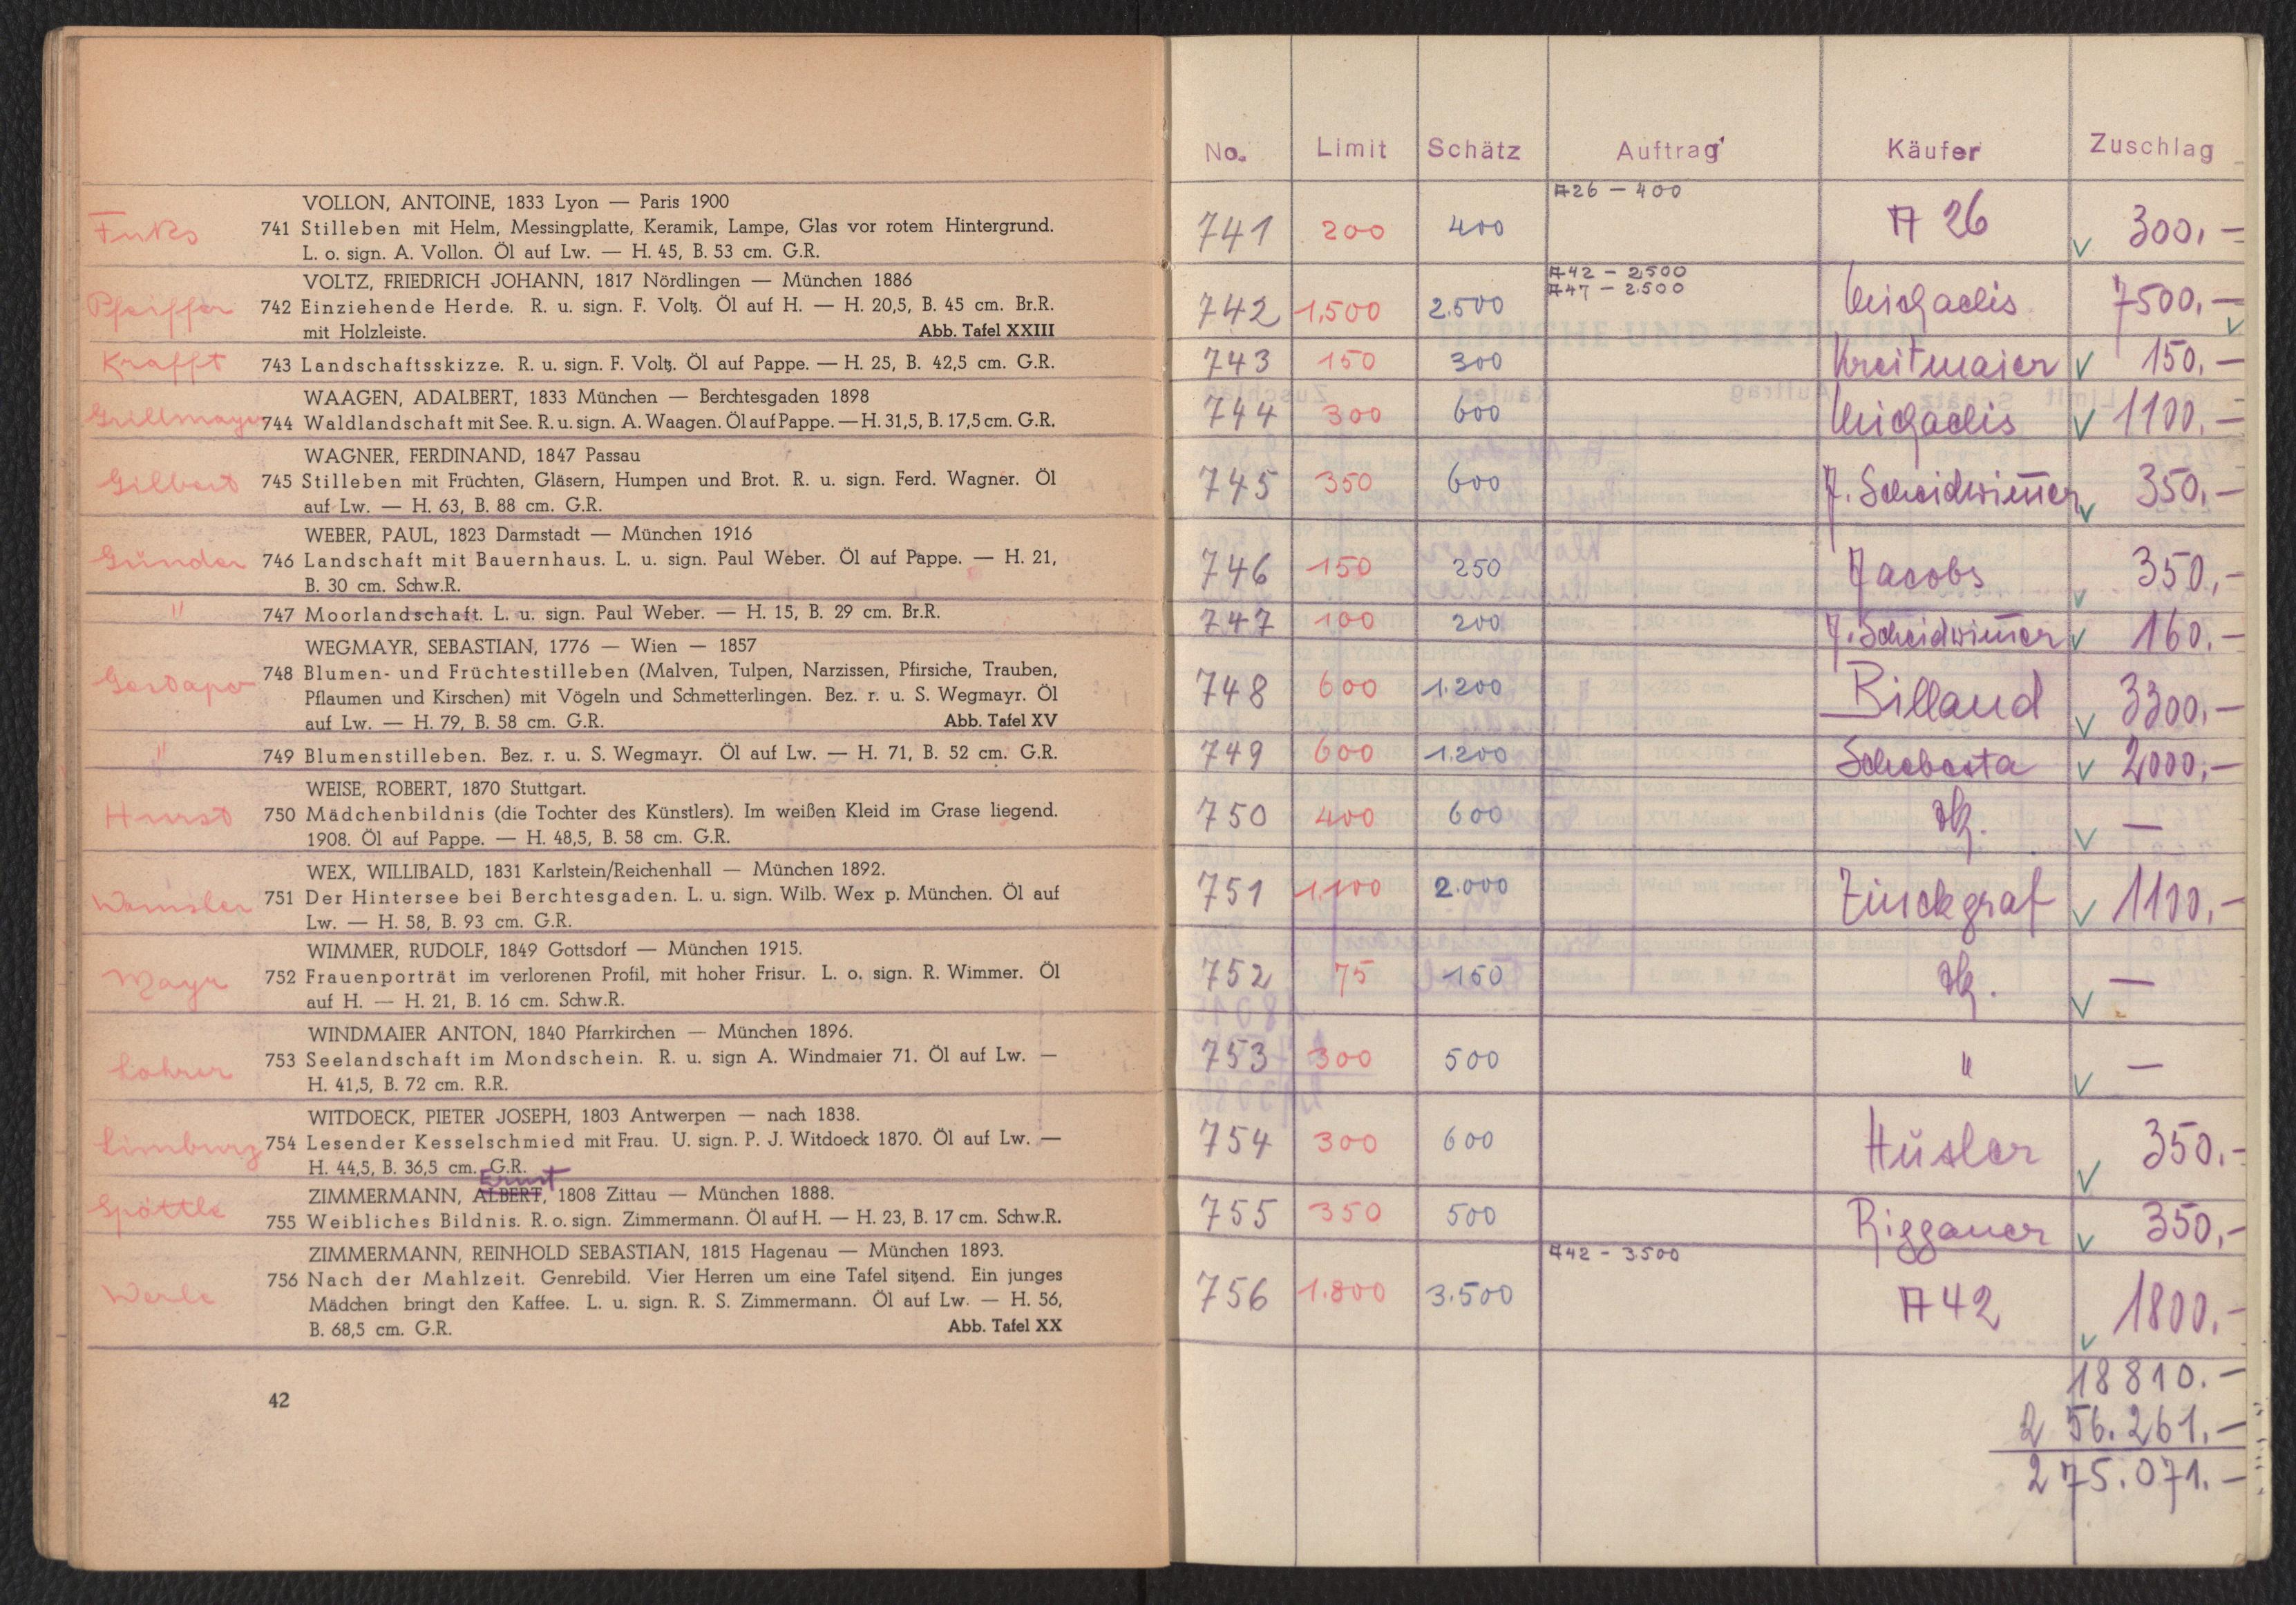 VOLLON, ANTOINE, 1833 Lyon — Paris 1900
Fuks
741 Stilleben mit Helm, Messingplatte, Keramik, Lampe, Glas vor rotem Hintergrund.
L. o. sign. A. Vollon. Öl auf Lw. — H. 45, B. 53 cm. G.R.
VOLTZ, FRIEDRICH JOHANN, 1817 Nördlingen — München 1886
Pfeiffer
742 Einziehende Herde. R. u. sign. F. Voltz. Öl auf H. — H. 20,5, B. 45 cm. Br.R.
mit Holzleiste. Abb. Tafel XXIII
Krafft
743 Landschaftsskizze. R. u. sign. F. Voltz. Öl auf Pappe. — H. 25, B. 42,5 cm. G.R.
WAAGEN, ADALBERT, 1833 München — Berchtesgaden 1898
Grillmayer
744 Waldlandschaft mit See. R. u. sign. A. Waagen. Öl auf Pappe. — H. 31,5, B. 17,5 cm. G.R.
WAGNER, FERDINAND, 1847 Passau
Gilbert
745 Stilleben mit Früchten, Gläsern, Humpen und Brot. R. u. sign. Ferd. Wagner. Öl
auf Lw. — H. 63, B. 88 cm. G.R.
WEBER, PAUL, 1823 Darmstadt — München 1916
Günder
746 Landschaft mit Bauernhaus. L. u. sign. Paul Weber. Öl auf Pappe. — H. 21,
B. 30 cm. Schw.R.
"
747 Moorlandschaft. L. u. sign. Paul Weber. — H. 15, B. 29 cm. Br.R.
WEGMAYR, SEBASTIAN, 1776 — Wien — 1857
Gestapo
748 Blumen- und Früchtestilleben (Malven, Tulpen, Narzissen, Pfirsiche, Trauben,
Pflaumen und Kirschen) mit Vögeln und Schmetterlingen. Bez. r. u. S. Wegmayr. Öl
auf Lw. — H. 79, B. 58 cm. G.R. Abb. Tafel XV
"
749 Blumenstilleben. Bez. r. u. S. Wegmayr. Öl auf Lw. — H. 71, B. 52 cm. G.R.
WEISE, ROBERT, 1870 Stuttgart.
Hurst
750 Mädchenbildnis (die Tochter des Künstlers). Im weißen Kleid im Grase liegend.
1908. Öl auf Pappe. — H. 48,5, B. 58 cm. G.R.
WEX, WILLIBALD, 1831 Karlstein/Reichenhall — München 1892.
Wamsler
751 Der Hintersee bei Berchtesgaden. L. u. sign. Wilb. Wex p. München. Öl auf
Lw. — H. 58, B. 93 cm. G.R.
WIMMER, RUDOLF, 1849 Gottsdorf — München 1915.
Mayr
752 Frauenporträt im verlorenen Profil, mit hoher Frisur. L. o. sign. R. Wimmer. Öl
auf H. — H. 21, B. 16 cm. Schw.R.
WINDMAIER ANTON, 1840 Pfarrkirchen — München 1896.
Lohrer
753 Seelandschaft im Mondschein. R. u. sign A. Windmaier 71. Öl auf Lw. —
H. 41,5, B. 72 cm. R.R.
WITDOECK, PIETER JOSEPH, 1803 Antwerpen — nach 1838.
Limburg
754 Lesender Kesselschmied mit Frau. U. sign. P. J. Witdoeck 1870. Öl auf Lw. —
H. 44,5, B. 36,5 cm. G.R.
Ernst
ZIMMERMANN, ALBERT, 1808 Zittau — München 1888.
Spöttle
755 Weibliches Bildnis. R. o. sign. Zimmermann. Öl auf H. — H. 23, B. 17 cm. Schw.R.
ZIMMERMANN, REINHOLD SEBASTIAN, 1815 Hagenau — München 1893.
Werle
756 Nach der Mahlzeit. Genrebild. Vier Herren um eine Tafel sitzend. Ein junges
Mädchen bringt den Kaffee. L. u. sign. R. S. Zimmermann. Öl auf Lw. — H. 56,
B. 68,5 cm. G.R. Abb. Tafel XX
42
No. Limit Schätz Auftrag Käufer Zuschlag
A26 — 400
741 200 400 A 26 √ 300,—
A42 — 2500
A47 — 2500
742 1,500 2.500 Michaelis 7500,— √
743 150 300 Kreitmaier √ 150,—
744 300 600 Michaelis √ 1100,—
745 350 600 J. Scheidwimmer √ 350,—
746 150 250 Jacobs √ 350,—
747 100 200 J. Scheidwimmer √ 160,—
748 600 1.200 Billand √ 3300,—
749 600 1.200 Schebesta √ 2000,—
750 400 600 √ —
751 1.100 2.000 Zinckgraf √ 1100,—
752 75 150 √ —
753 300 500 " √ —
754 300 600 Hüsler √ 350,—
755 350 500 Riggauer √ 350,—
A42 — 3.500
756 1.800 3.500 A 42 √ 1800,—
18810.—
256.261.—
275.071.—